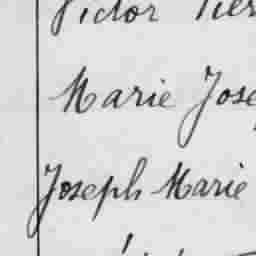 Victor Pier
Marie Jose
Joseph Marie